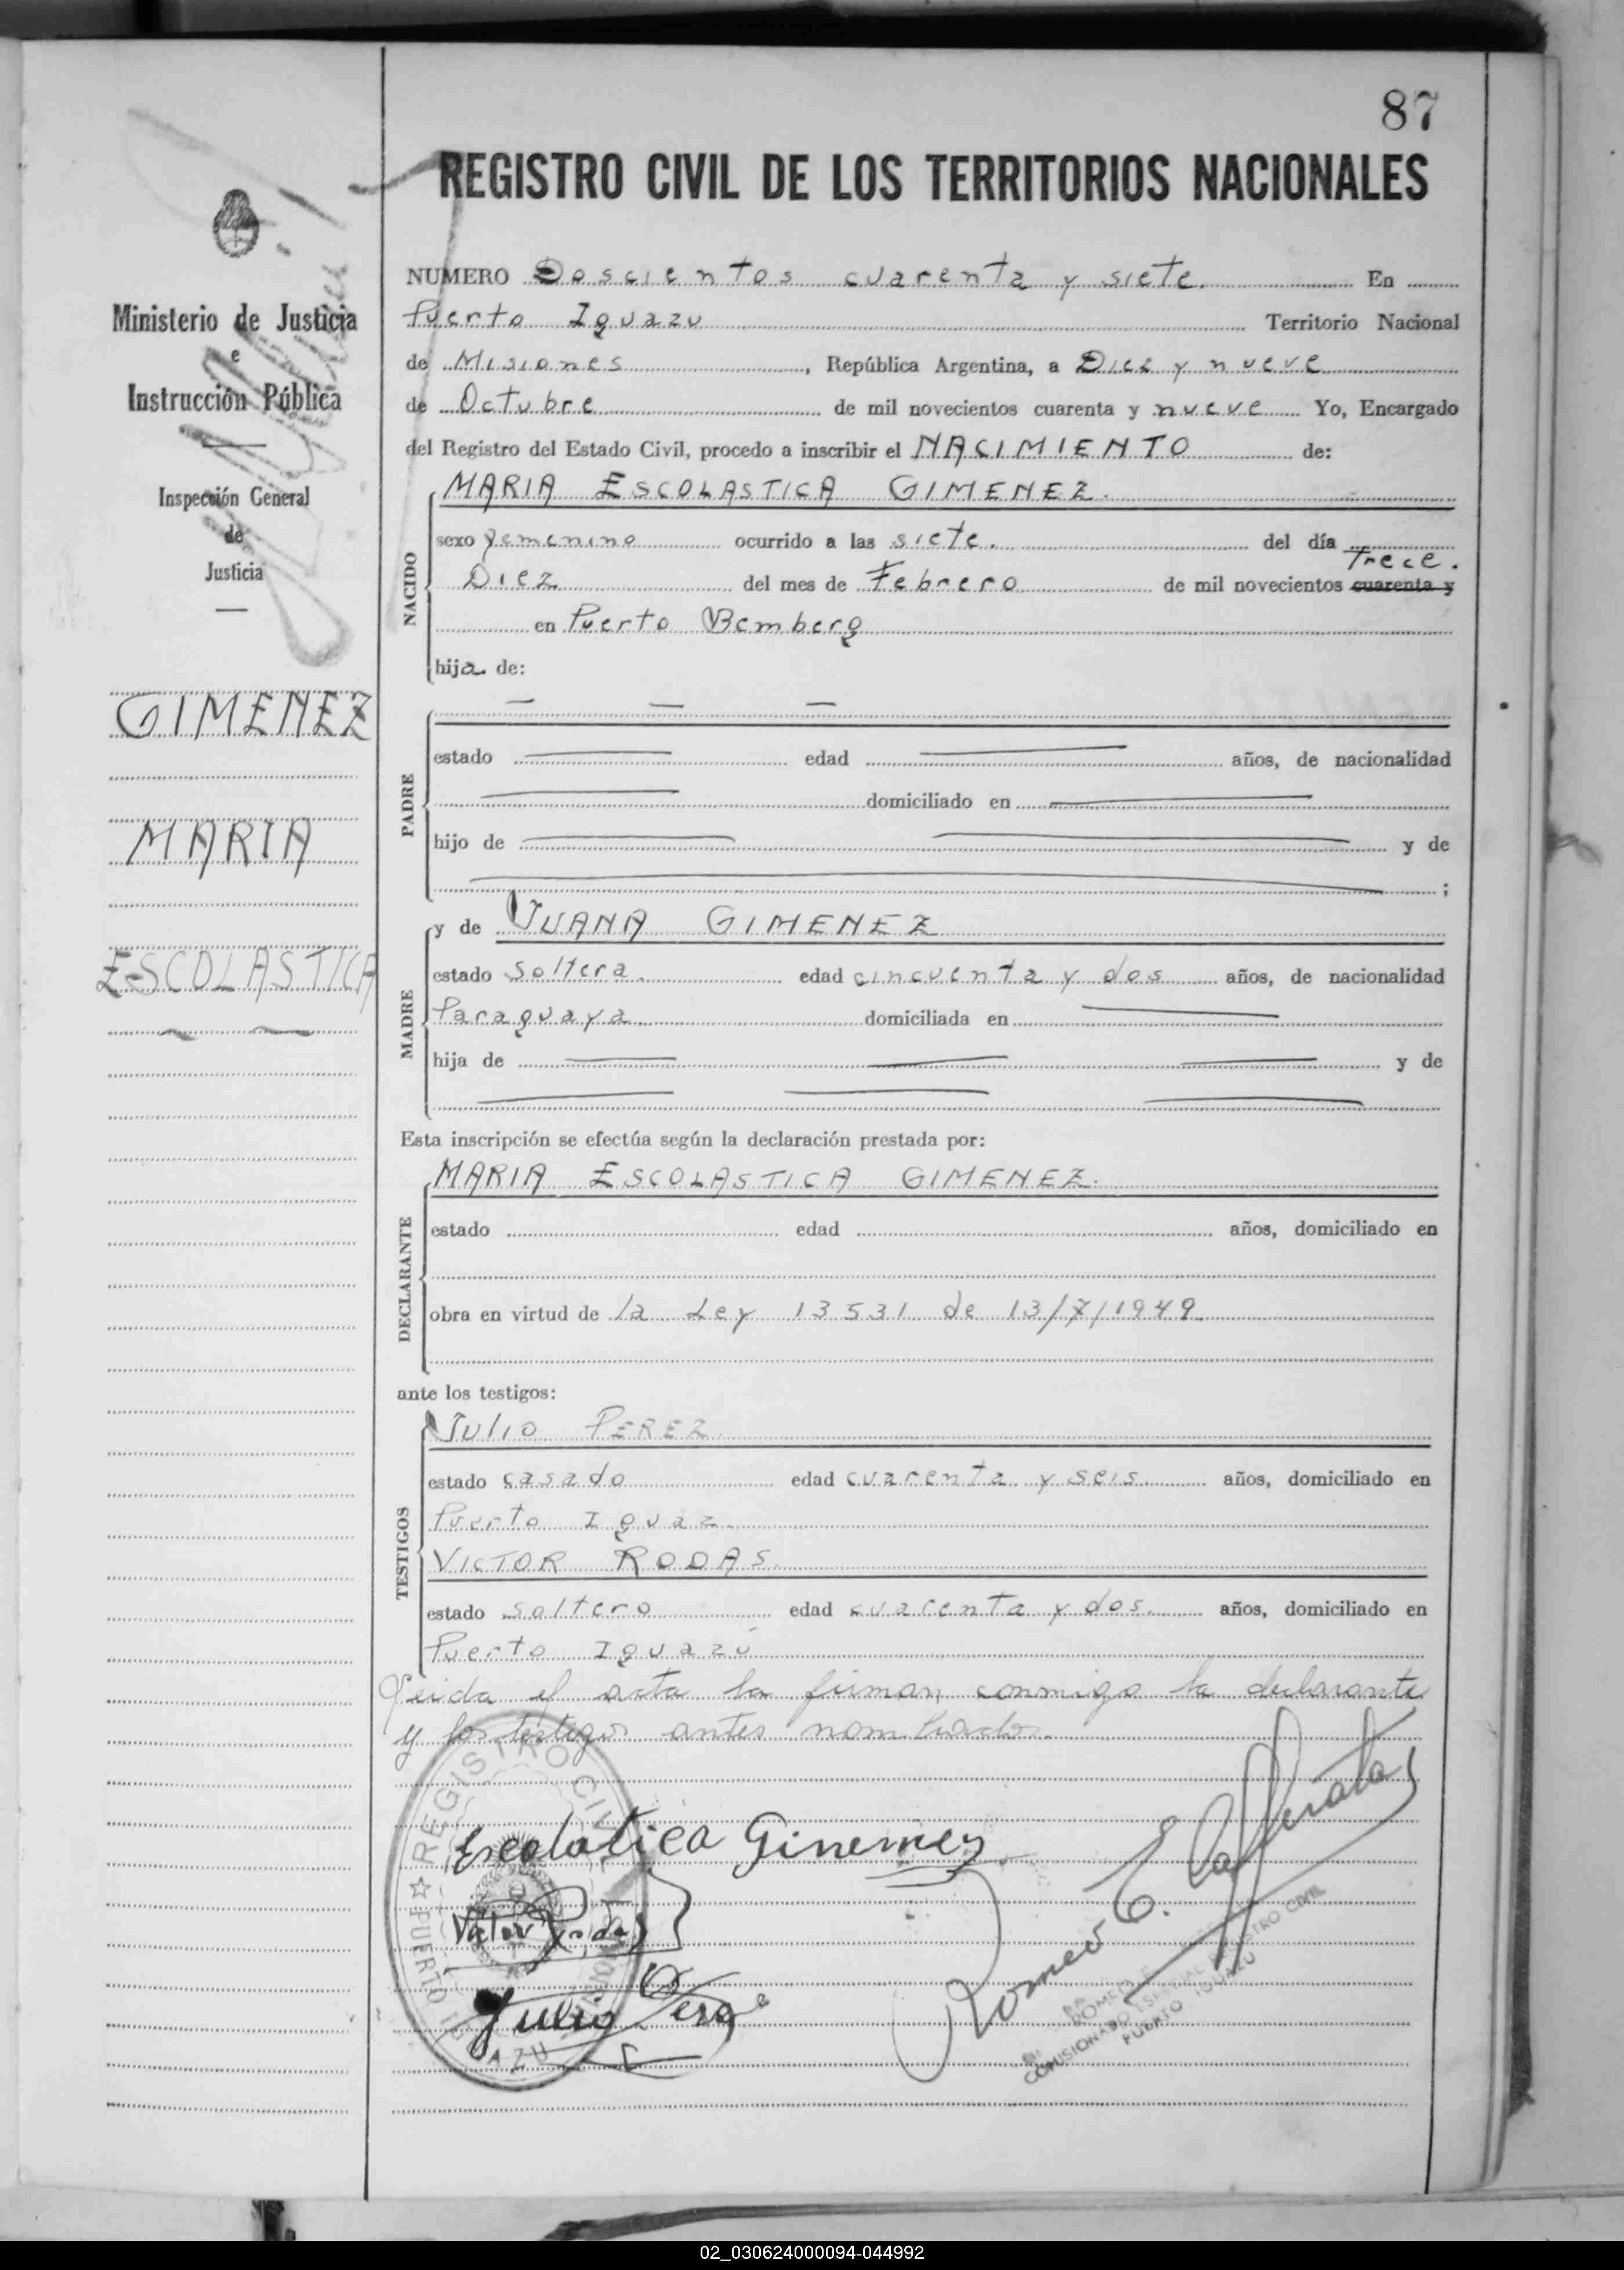 87
REGISTRO CIVIL DE LOS TERRITORIOS NACIONALES
Ministerio de Justicia
e
Instrucción Pública
Inspección General
de
Justicia
GIMENEZ
MARIA
ESCOLASTICA
NUMERO Doscientos cuarenta y siete. En
Puerto Iguazu Territorio Nacional
de Misiones, República Argentina, a Diez y nueve
de Octubre de mil novecientos cuarenta y nueve Yo, Encargado
del Registro del Estado Civil, procedo a inscribir el NACIMIENTO de:
NACIDO
MARIA ESCOLASTICA GIMENEZ.
sexo femenino ocurrido a las siete. del día
Trece.
Diez del mes de Febrero de mil novecientos cuarenta y
en Puerto Bemberg
hija de:
PADRE
estado edad años, de nacionalidad
domiciliado en
hijo de y de
;
MADRE
y de JUANA GIMENEZ
estado soltera. edad cincuenta y dos años, de nacionalidad
Paraguaya domiciliada en
hija de y de
Esta inscripción se efectúa según la declaración prestada por:
DECLARANTE
MARIA ESCOLASTICA GIMENEZ.
estado edad años, domiciliado en
obra en virtud de la Ley 13531 de 13/7/1949.
ante los testigos:
TESTIGOS
JULIO PEREZ.
estado casado edad cuarenta y seis años, domiciliado en
Puerto Iguaz.
VICTOR RODAS.
estado soltero edad cuarenta y dos. años, domiciliado en
Puerto Iguazú
Leida el acta la firman conmigo la declarante
y los testigos antes nombrados.
REGISTRO CIVIL
PUERTO IGUAZU
Escolatica Ginemez
Victor Rodas
Julio Perez
Romeo E.
ROMEO E.
COMISIONADO ESPECIAL REGISTRO CIVIL
PUERTO IGUAZU
02_030624000094-044992